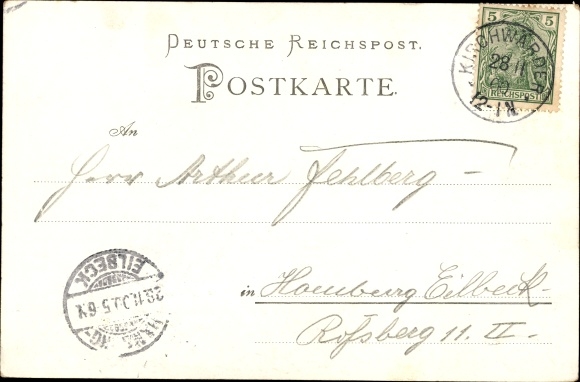 5 5
REICHSPOST
KIRCHWÄRDER
28 11
12-1N
DEUTSCHE REICHSPOST.
POSTKARTE.
An
Herr Arthur Fehlberg –
in Hamburg Eilbeck
Roßberg 11. II.
EILBECK
28.11.00. 5-6N